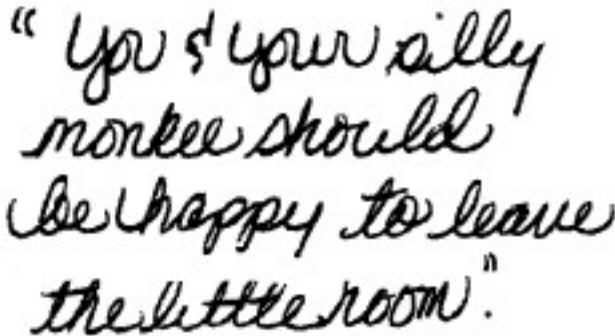 “ you & your silly
monkee should
be happy to leave
the little room".